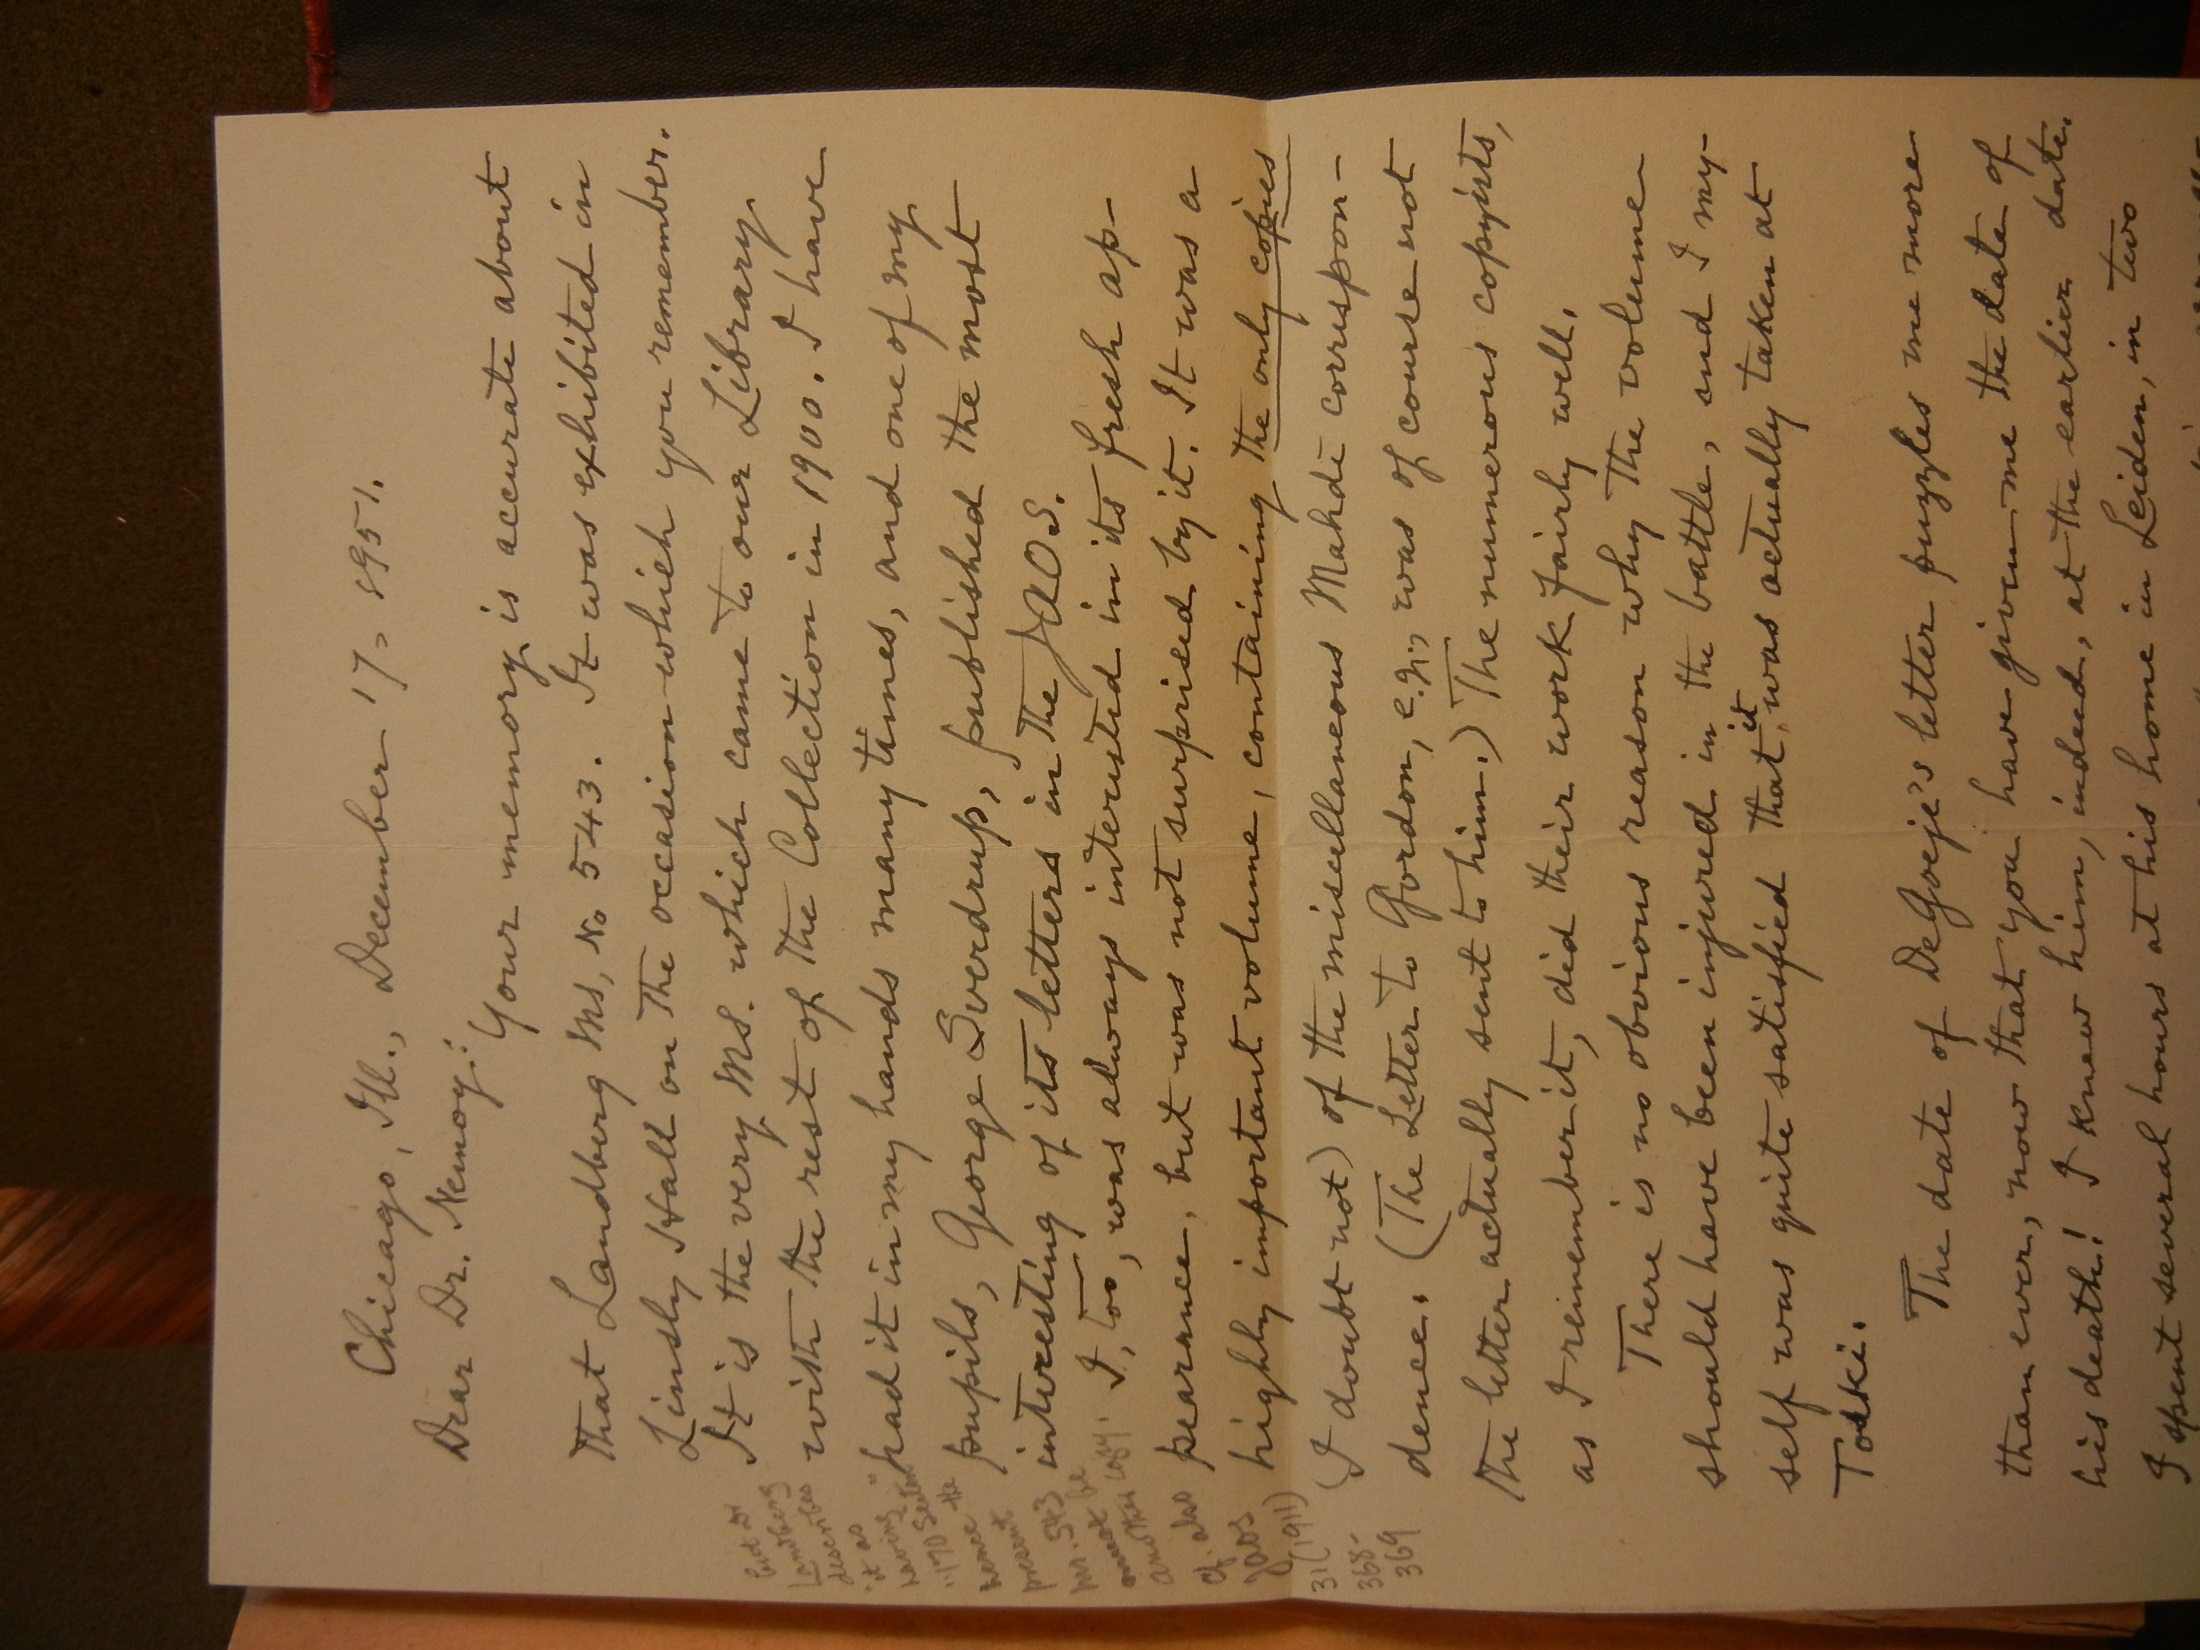 Chicago, Ill., December 17, 1951.
Dear Dr. Nemoy:
Your memory is accurate about
that Landberg Ms, No 543. It was exhibited in
Linsly Hall on the occasion which you remember.
It is the very Ms. which came to our Library
with the rest of the Collection in 1900. I have
had it in my hands many times, and one of my
pupils, George Sverdrup, published the most
interesting of its letters in the JAOS.
I, too, was always interested in its fresh ap-
pearance, but was not surprised by it. It was a
highly important volume, containing the only copies
(I doubt not) of the miscellaneous Mahdi correspon-
dence. (The Letter to Gordon, e.g., was of course not
the letter actually sent to him.) The numerous copyists,
as I remember it, did their work fairly well.
There is no obvious reason why the volume
should have been injured in the battle, and I my-
self was quite satisfied that it was actually taken at
Toski.
The date of DeGoeje's letter puzzles me more
than ever, now that you have given me the date of
his death! I knew him, indeed, at the earlier date.
I spent several hours at his home in Leiden, in two
but
Landberg
describes
it as
"having"
"170 
hence the
present
ms. 543
must be
another copy.
Cf. also
JAOS
31 (1911)
368-
369